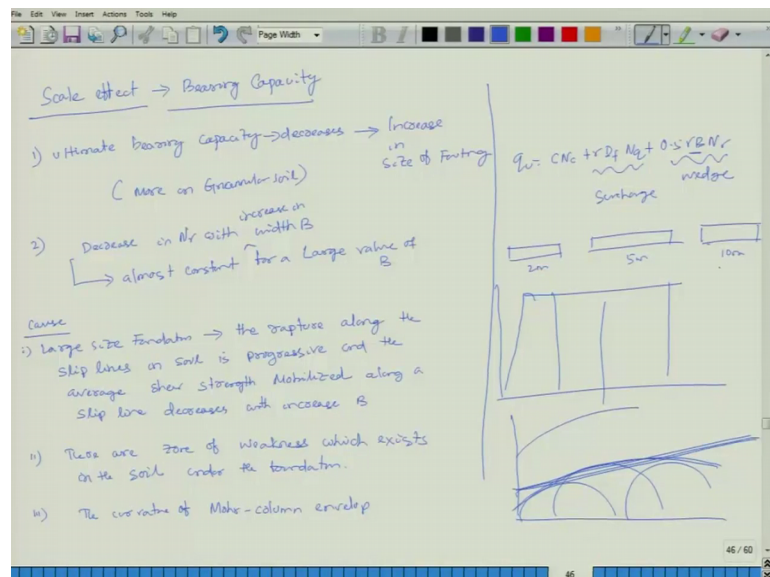 File Edit View Insert Actions Tools Help
Page Width
B I
Scale effect → Bearing Capacity
1) ultimate bearing capacity → decreases → Increase
in
size of Footing
(More on Granular soil)
2) Decrease in Nr with increase in
width B
→ almost constant for a Large value of
B
Cause
i) Large size Foundatin → the rapture along the
slip lines in soil is progressive and the
average shear strength Mobilized along a
slip line decreases with increase B
ii) There are zone of weakness which exists
in the soil under the foundation.
iii) The curvature of Mohr-column envelop
qu = CNc + rDf Nq + 0.5 rBNr
Surcharge
wedge
2m
5m
10m
46 / 60
46